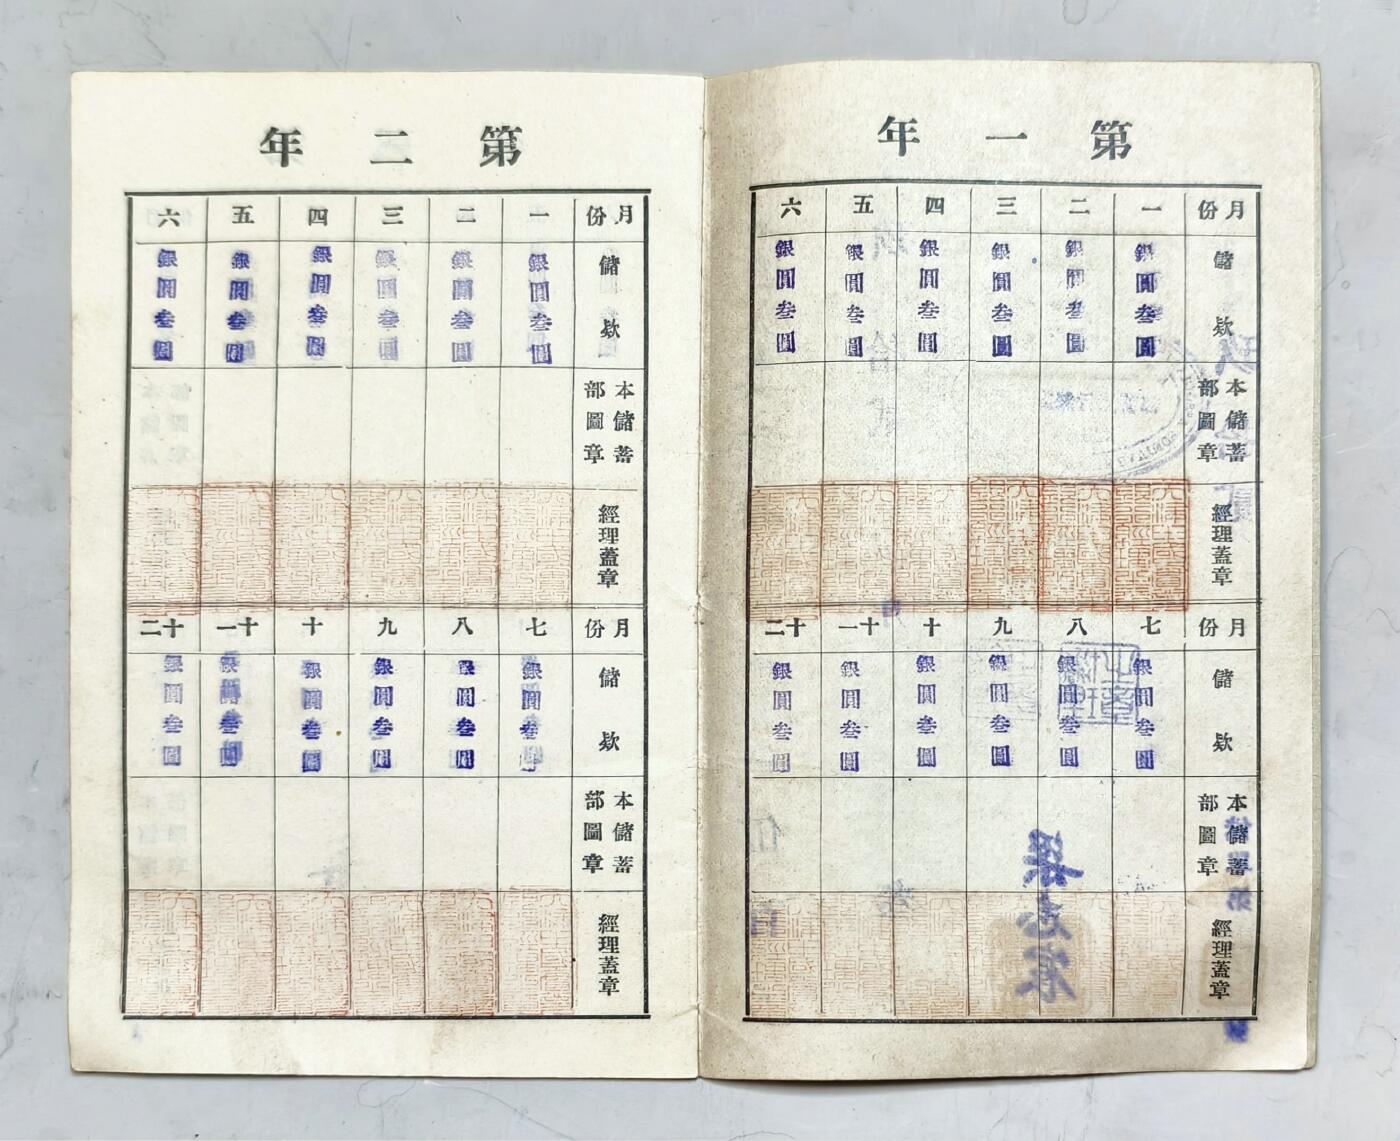 第一年
月份 一 二 三 四 五 六
儲款 銀圓叁圓 銀圓叁圓 銀圓叁圓 銀圓叁圓 銀圓叁圓 銀圓叁圓
本儲蓄部圖章
經理蓋章
月份 七 八 九 十 十一 十二
儲款 銀圓叁圓 銀圓叁圓 銀圓叁圓 銀圓叁圓 銀圓叁圓 銀圓叁圓
本儲蓄部圖章
經理蓋章
第二年
月份 一 二 三 四 五 六
儲款 銀圓叁圓 銀圓叁圓 銀圓叁圓 銀圓叁圓 銀圓叁圓 銀圓叁圓
本儲蓄部圖章
經理蓋章
月份 七 八 九 十 十一 十二
儲款 銀圓叁圓 銀圓叁圓 銀圓叁圓 銀圓叁圓 銀圓叁圓 銀圓叁圓
本儲蓄部圖章
經理蓋章